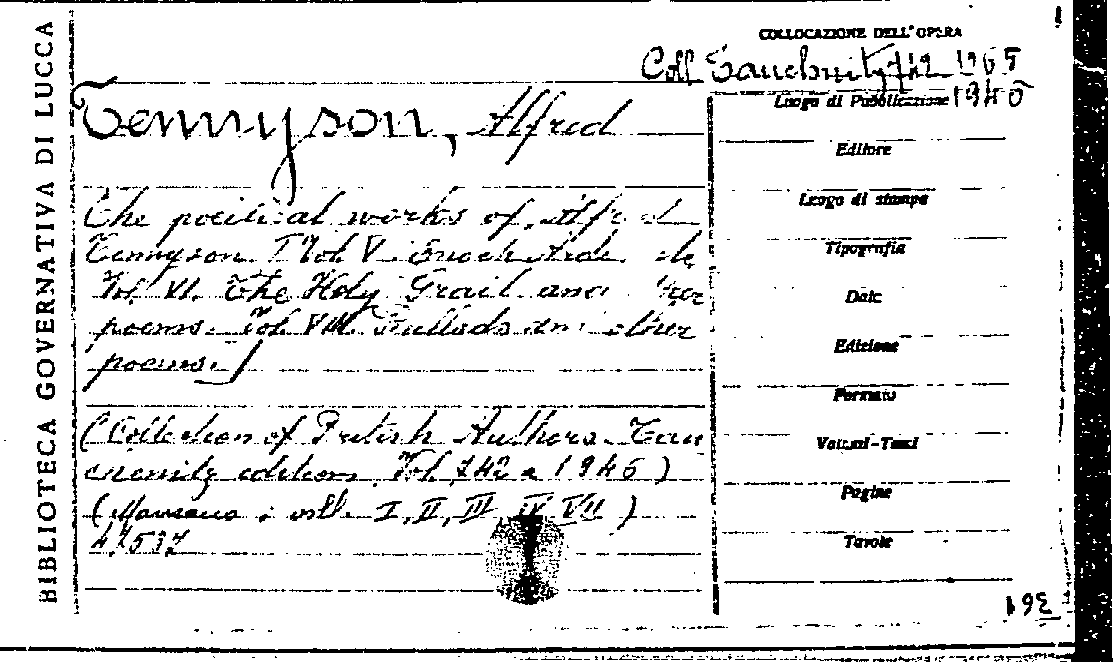 BIBLIOTECA GOVERNATIVA DI LUCCA
COLLOCAZIONE DELL'OPERA
Coll. Tauchnitz 742 1965
1945
Tennyson, Alfred
The poetical works of Alfred
Tennyson. [Vol. V. Enoch Arden etc
Vol. VI. The Holy Grail and other
poems. Vol. VIII. Ballads and other
poems.]
(Collection of British Authors. Tau
chnitz edition, Vol. 742 e 1945)
(Mancano i voll. I, II, III, IV, VII)
Luogo di Pubblicazione
Editore
Luogo di stampa
Tipografia
Data
Edizione
Formato
Volumi-Tomi
Pagine
Tavole